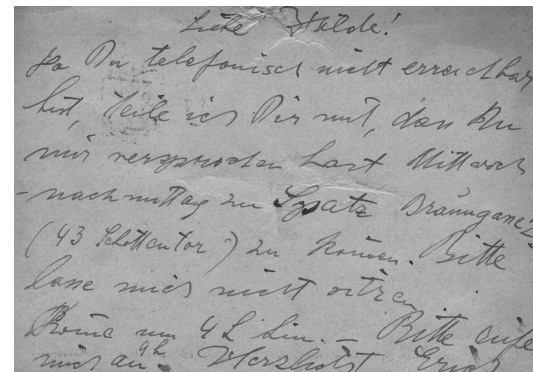 Liebe Hilde!
Da Du telefonisch nicht erreichbar
bist, teile ich Dir mit, dass Du
mir versprochen hast Mittwoch
- nachmittag zu Spatz
(43 Schottentor) zu kommen. Bitte
lasse mich nicht sitzen
Komme um 4 h hin. - Bitte rufe
mich an 9h Herzlichst Erich